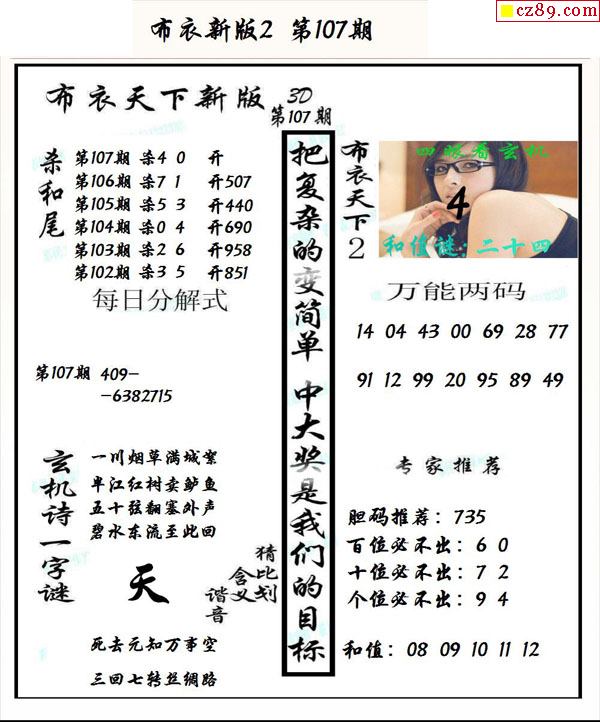 cz89.com
布衣新版2 第107期
布衣天下新版 3D
第107期
杀和尾
第107期 杀4 0 开
第106期 杀7 1 开507
第105期 杀5 3 开440
第104期 杀0 4 开690
第103期 杀2 6 开958
第102期 杀3 5 开851
每日分解式
第107期 409-
-6382715
玄机诗一字谜
一川烟草满城絮
半江红树卖鲈鱼
五十弦翻塞外声
碧水东流至此回
天
猜比划
含义
谐音
死去元知万事空
三回七转丝绸路
把复杂的变简单 中大奖是我们的目标
布衣天下2
四眼看玄机
4
和值谜:二十四
万能两码
14 04 43 00 69 28 77
91 12 99 20 95 89 49
专家推荐
胆码推荐：735
百位必不出：6 0
十位必不出：7 2
个位必不出：9 4
和值：08 09 10 11 12